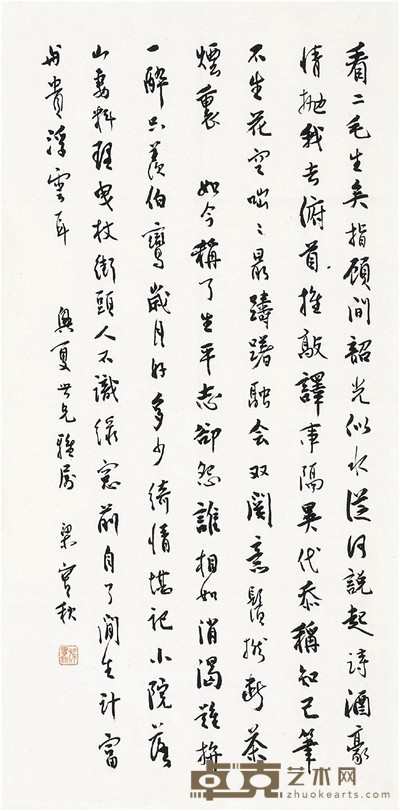 看二毛生矣指顧間韶光似水從何說起詩酒豪
情拋我去俯首推敲譯事隔異代忝稱知己筆
不生花空咄々最躊躇融会双関意鬚撚断茶
煙裏 如今稱了生平志卻怨誰相如消渴難拚
一醉只羨伯鸞歲月好多少綺情堪記小院落
山妻料理曳杖街頭人不識綠窓前自了閒生計富
与貴浮雲耳 興夏世兄雅屬 梁實秋
卓克艺术网
zhuokearts.com